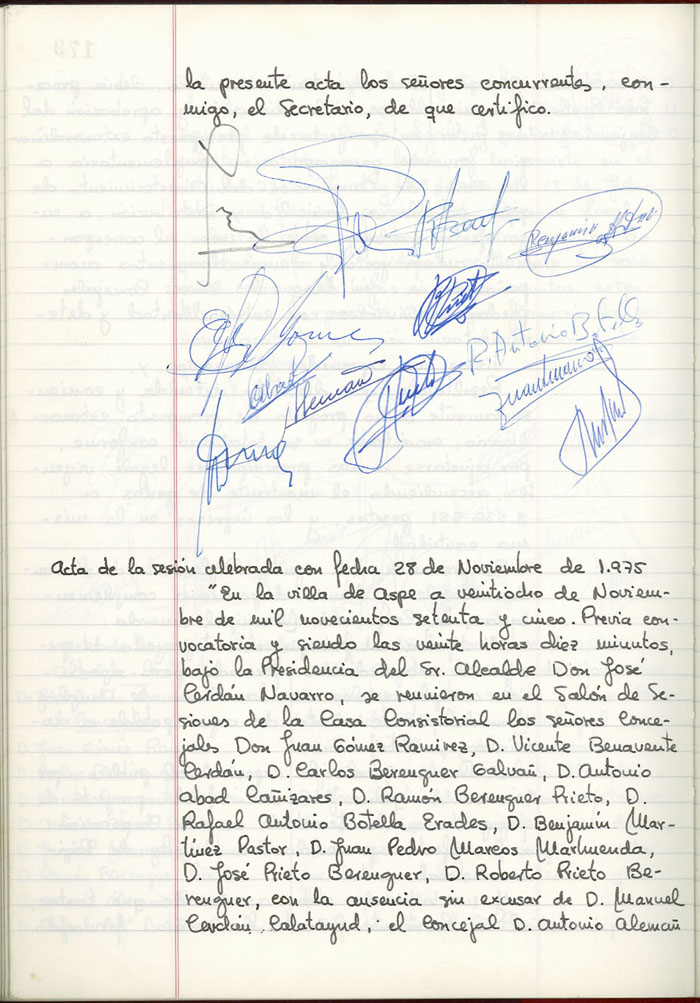 la presente acta los señores concurrentes, con-
migo, el Secretario, de que certifico.
Benjamin
R. Antonio B.
Acta de la sesión celebrada con fecha 28 de Noviembre de 1.975
"En la villa de Aspe a veintiocho de Noviem-
bre de mil novecientos setenta y cinco. Previa con-
vocatoria y siendo las veinte horas diez minutos,
bajo la Presidencia del Sr. Alcalde Don José
Cerdán Navarro, se reunieron en el Salón de Se-
siones de la Casa Consistorial los señores Conce-
jales Don Juan Gómez Ramirez, D. Vicente Benavente
Cerdán, D. Carlos Berenguer Galvañ, D. Antonio
Abad Cañizares, D. Ramón Berenguer Prieto, D.
Rafael Antonio Botella Erades, D. Benjamín Mar-
tínez Pastor, D. Juan Pedro Marcos Marhuenda,
D. José Prieto Berenguer, D. Roberto Prieto Be-
renguer, con la ausencia sin excusar de D. Manuel
Cerdán Calatayud, el Concejal D. Antonio Alemañ